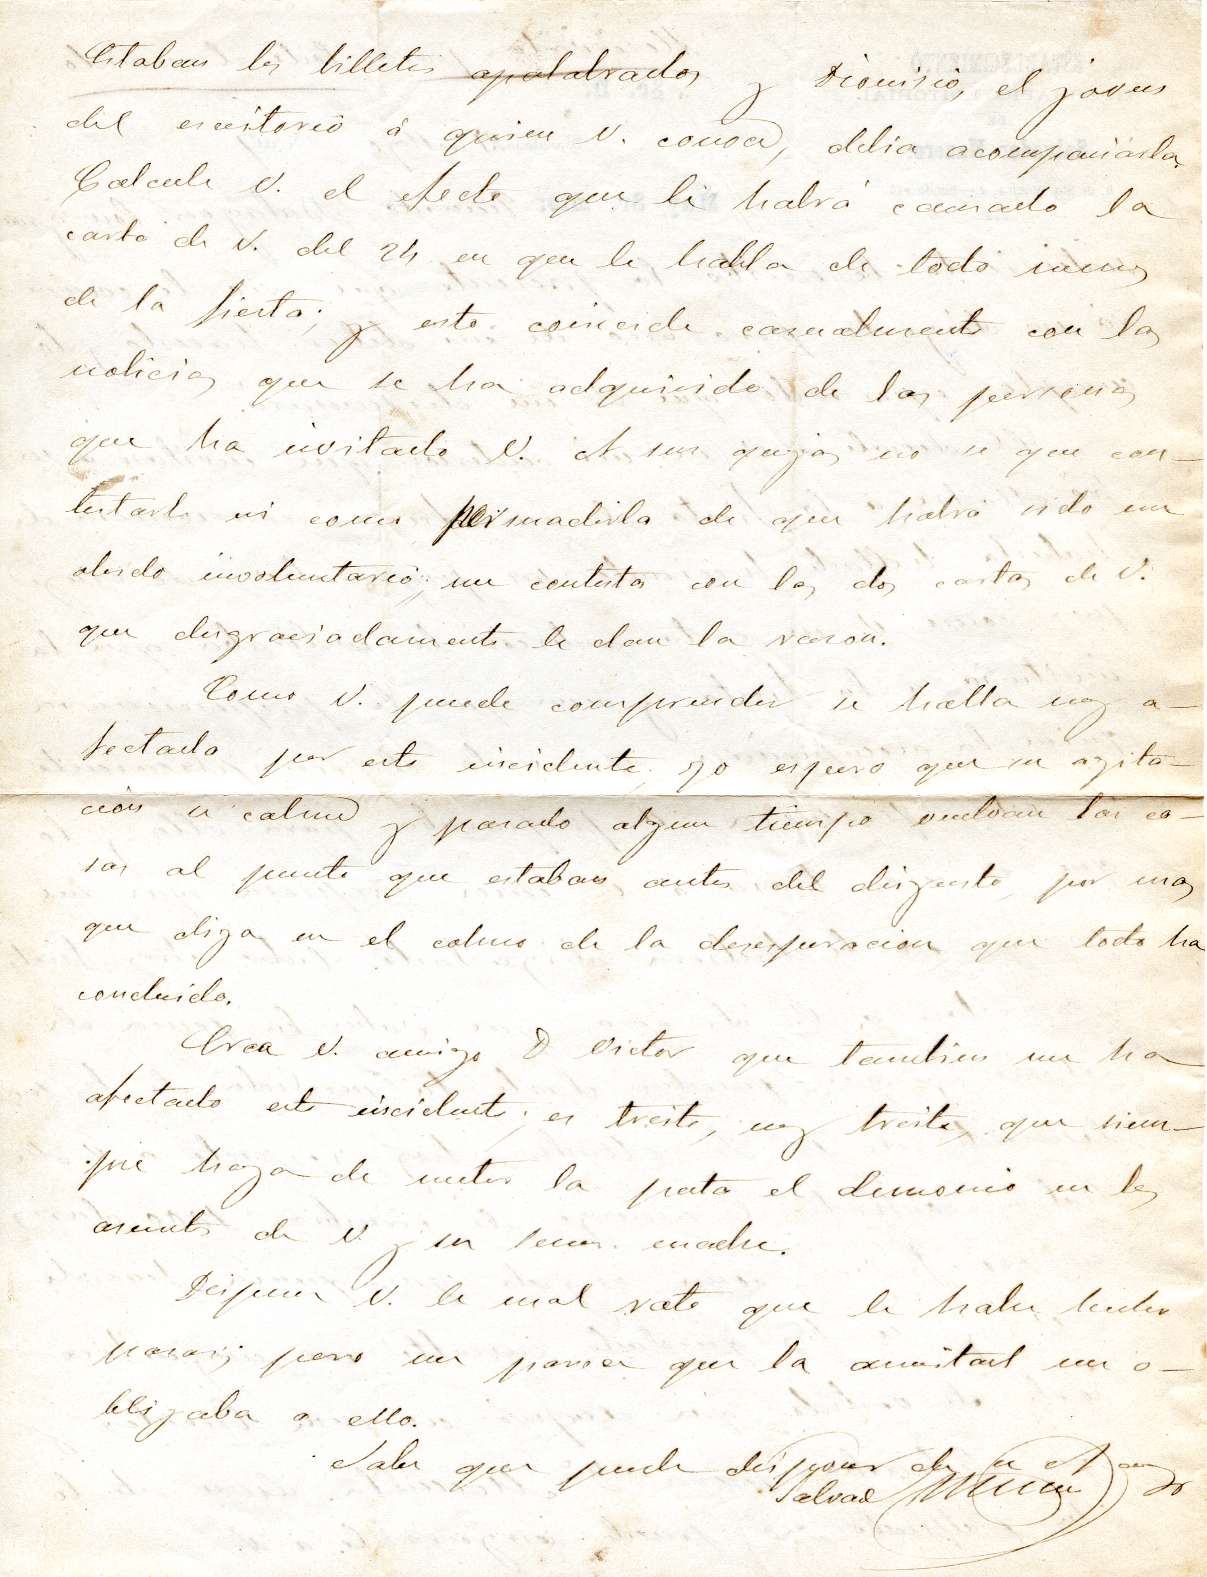 Estaban los billetes apalabrados y Dionisio, el joven
del escritorio á quien V. conoce, debia acompañarla.
Calcule V. el efecto que le habrá causado la
carta de V. del 24 en que le habla de todo menos
de la fiesta; y esto coincide casualmente con las
noticias que se ha adquirido de las personas
que ha invitado V. A sus quejas no se que con-
testarle ni como persuadirla de que habrá sido un
olvido involuntario; me contesta con las dos cartas de V.
que desgraciadamente le dan la razon.
Como V. puede comprender se halla muy a-
fectada por este incidente, yo espero que su agita-
ción se calme y pasado algun tiempo vuelvan las co-
sas al punto que estaban antes del disgusto, por mas
que diga en el colmo de la desesperacion que todo ha
concluido.
Crea V. amigo D Victor que tambien me ha
afectado este incidente; es triste, muy triste, que siem-
pre haya de meter la pata el demonio en los
asuntos de V. y su señora madre.
Dispense V. le mal rato que le habre hecho
pasar; pero me parece que la amistad me o-
bligaba a ello.
Sabe que puede disponer de su A amigo
Salvad